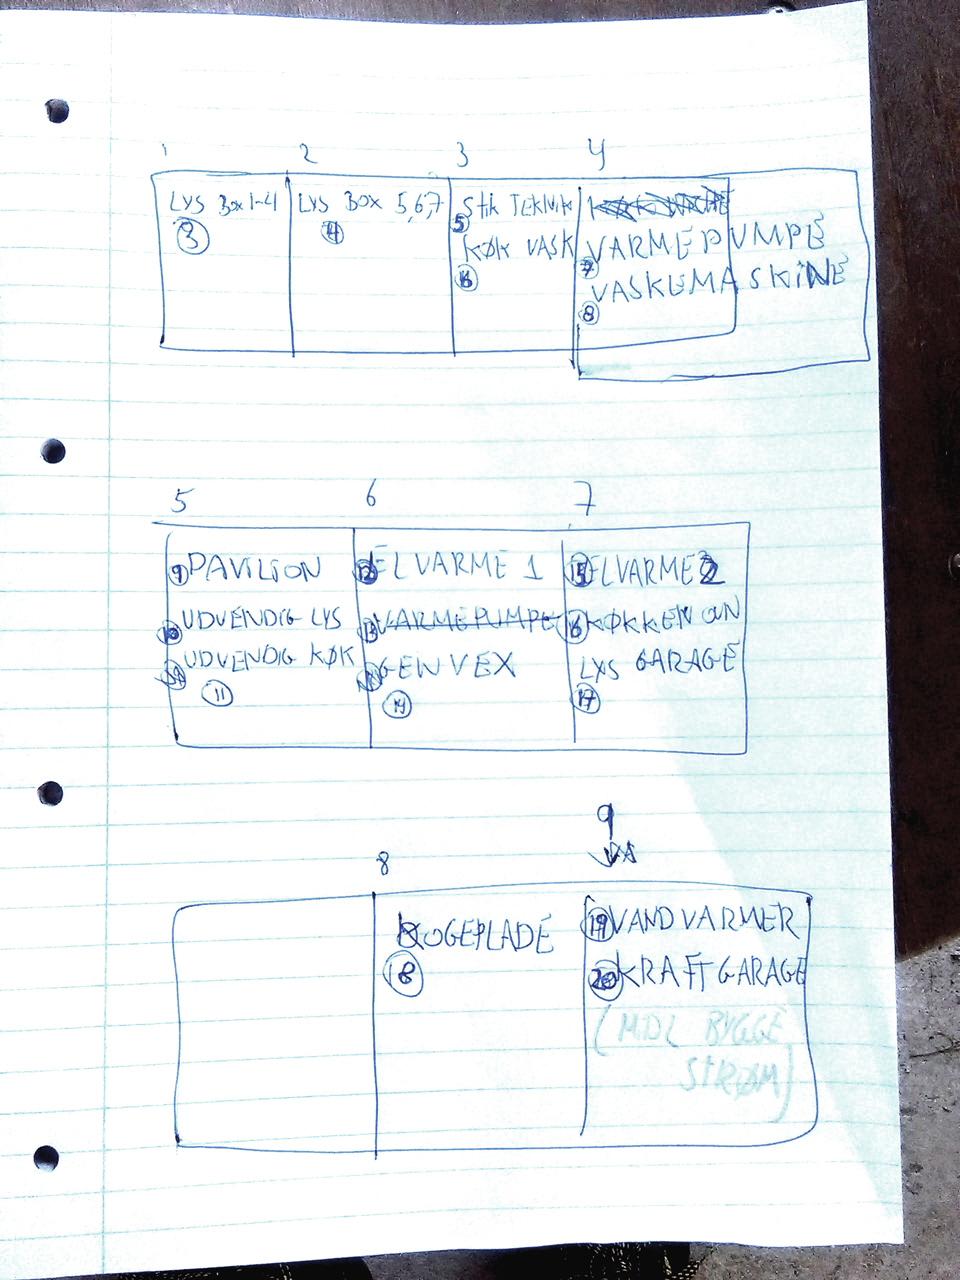 1 2 3 4
LYS Box 1-4
3
LYS BOX 5,6,7
4
Stik TEKNIK
5
KØK VASK
6
VARMEPUMPE
7
VASKEMASKINE
8
5 6 7
9 PAVILION
10 UDVENDIG LYS
UDVENDIG KØK
11
12 ELVARME 1
13 VARMEPUMPE
GENVEX
14
15 ELVARME 2
16 KØKKEN OVN
LYS GARAGE
17
8 9
KOGEPLADE
18
19 VANDVARMER
20 KRAFT GARAGE
(MIDL BYGGE
STRØM)